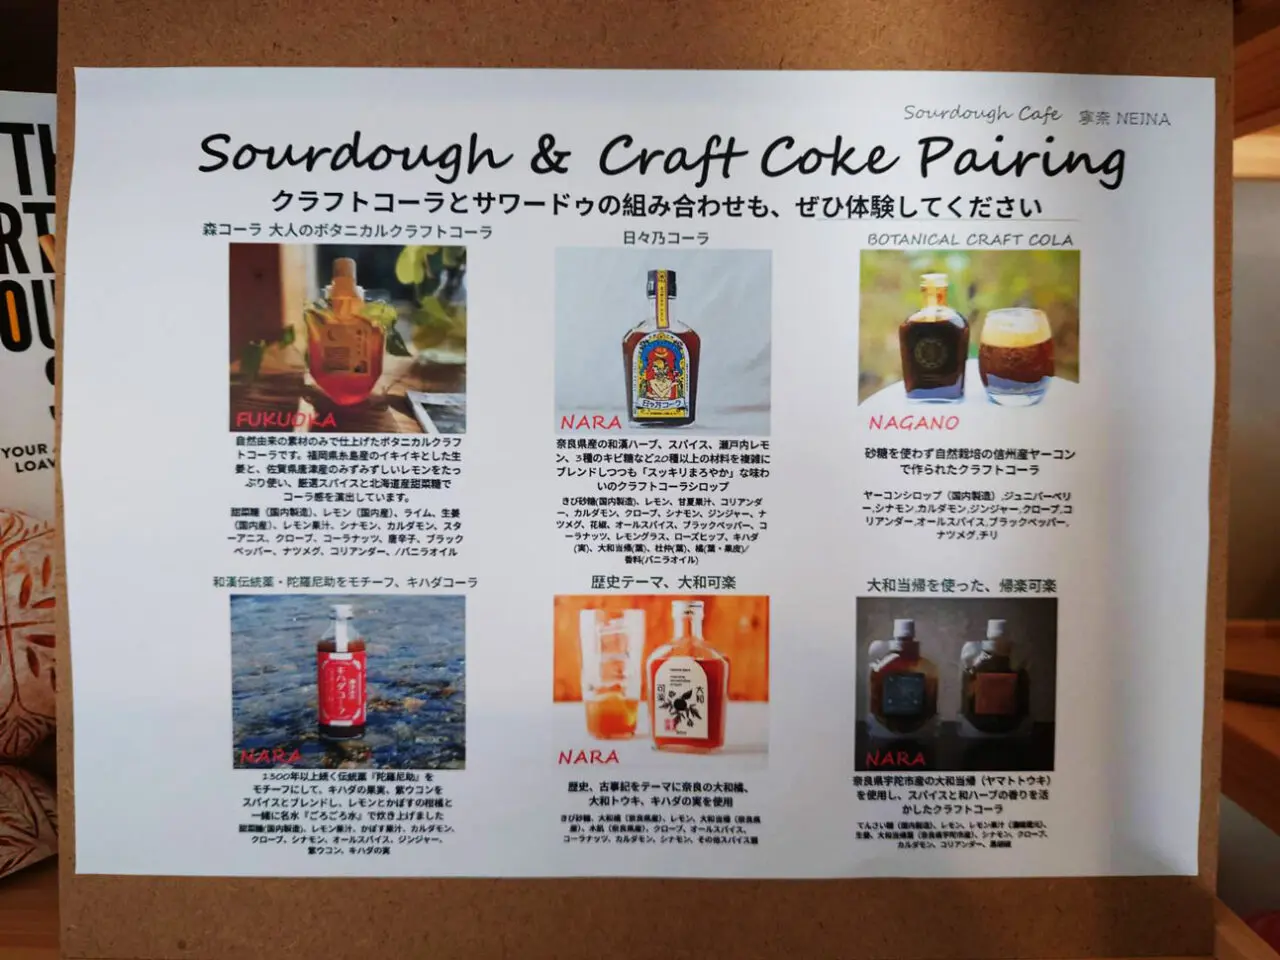 Sourdough Cafe 寧奈 NEINA
Sourdough & Craft Coke Pairing
クラフトコーラとサワードゥの組み合わせも、ぜひ体験してください
森コーラ 大人のボタニカルクラフトコーラ
FUKUOKA
自然由来の素材のみで仕上げたボタニカルクラフ
トコーラです。福岡県糸島産のイキイキとした生
姜と、佐賀県唐津産のみずみずしいレモンをたっ
ぷり使い、厳選スパイスと北海道産甜菜糖で
コーラ感を演出しています。
甜菜糖（国内製造）、レモン（国内産）、ライム、生姜
（国内産）、レモン果汁、シナモン、カルダモン、スタ
ーアニス、クローブ、コーラナッツ、唐辛子、ブラック
ペッパー、ナツメグ、コリアンダー、/バニラオイル
日々乃コーラ
日々乃コーラ
NARA
奈良県産の和漢ハーブ、スパイス、瀬戸内レモ
ン、3種のキビ糖など20種以上の材料を複雑に
ブレンドしつつも「スッキリまろやか」な味わ
いのクラフトコーラシロップ
きび砂糖(国内製造)、レモン、甘夏果汁、コリアンダ
ー、カルダモン、クローブ、シナモン、ジンジャー、ナ
ツメグ、花椒、オールスパイス、ブラックペッパー、コ
ーラナッツ、レモングラス、ローズヒップ、キハダ
(実)、大和当帰(葉)、杜仲(葉)、橘(葉・果皮)/
香料(バニラオイル)
BOTANICAL CRAFT COLA
NAGANO
砂糖を使わず自然栽培の信州産ヤーコン
で作られたクラフトコーラ
ヤーコンシロップ（国内製造）,ジュニパーベリ
ー,シナモン,カルダモン,ジンジャー,クローブ,コ
リアンダー,オールスパイス,ブラックペッパー,
ナツメグ,チリ
和漢伝統薬・陀羅尼助をモチーフ、キハダコーラ
キハダコーラ
NARA
1300年以上続く伝統薬『陀羅尼助』を
モチーフにして、キハダの果実、紫ウコンを
スパイスとブレンドし、レモンとかぼすの柑橘と
一緒に名水『ごろごろ水』で炊き上げました
甜菜糖(国内製造)、レモン果汁、かぼす果汁、カルダモン、
クローブ、シナモン、オールスパイス、ジンジャー、
紫ウコン、キハダの実
歴史テーマ、大和可楽
大和
可楽
NARA
歴史、古事記をテーマに奈良の大和橘、
大和トウキ、キハダの実を使用
きび砂糖、大和橘（奈良県産）、レモン、大和当帰（奈良県
産）、木肌（奈良県産）、クローブ、オールスパイス、
コーラナッツ、カルダモン、シナモン、その他スパイス類
大和当帰を使った、帰楽可楽
NARA
奈良県宇陀市産の大和当帰（ヤマトトウキ）
を使用し、スパイスと和ハーブの香りを活
かしたクラフトコーラ
てんさい糖（国内製造）、レモン、レモン果汁
生姜、大和当帰葉（奈良県宇陀市産）、シナモン、クローブ、
カルダモン、コリアンダー、黒胡椒
YOUR
LOAV